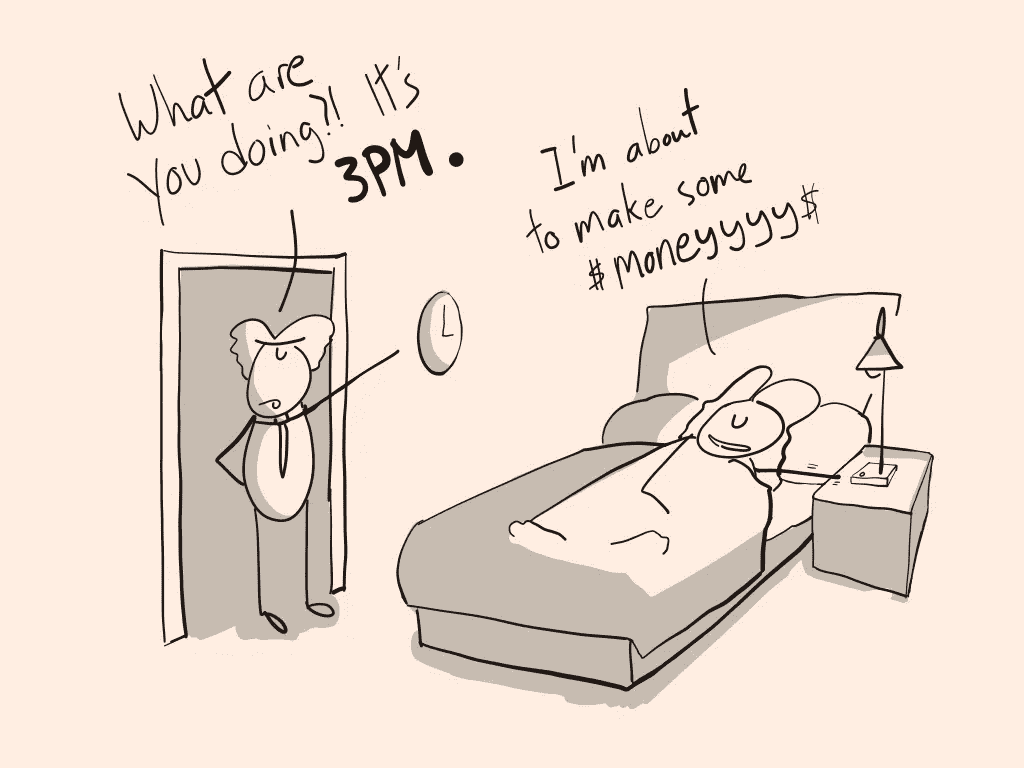 What are
you doing?! It's
3PM.
I'm about
to make some
$moneyyyy$